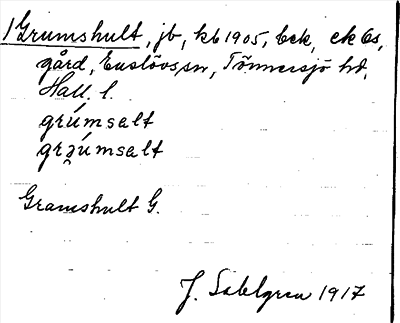 1 Grumshult, jb, kb 1905, bek, ek Gs,
gård, Euslövs sn, Tönnersjö hd,
Hall. l.
grúmsalt
grə̯úmsalt
Gramshult G.
J. Sahlgren 1917